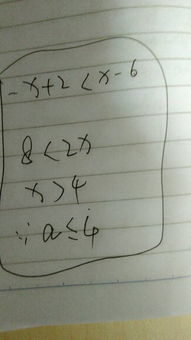 -x+2<x-6
8<2x
x>4
∵a≤4